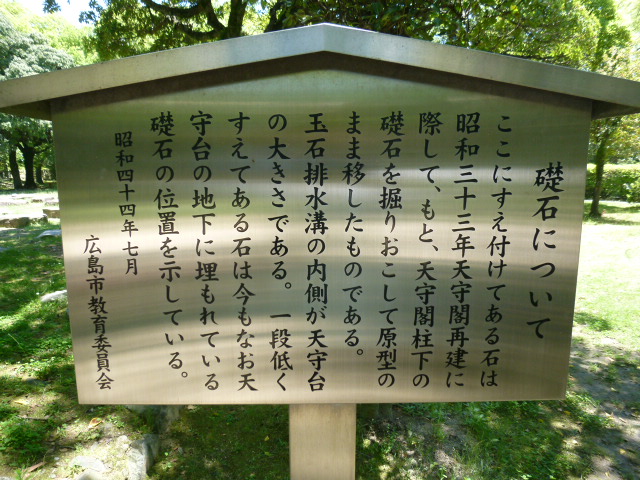 礎石について
ここにすえ付けてある石は
昭和三十三年天守閣再建に
際して、もと、天守閣柱下の
礎石を掘りおこして原型の
まま移したものである。
玉石排水溝の内側が天守台
の大きさである。一段低く
すえてある石は今もなお天
守台の地下に埋もれている
礎石の位置を示している。
昭和四十四年七月
広島市教育委員会